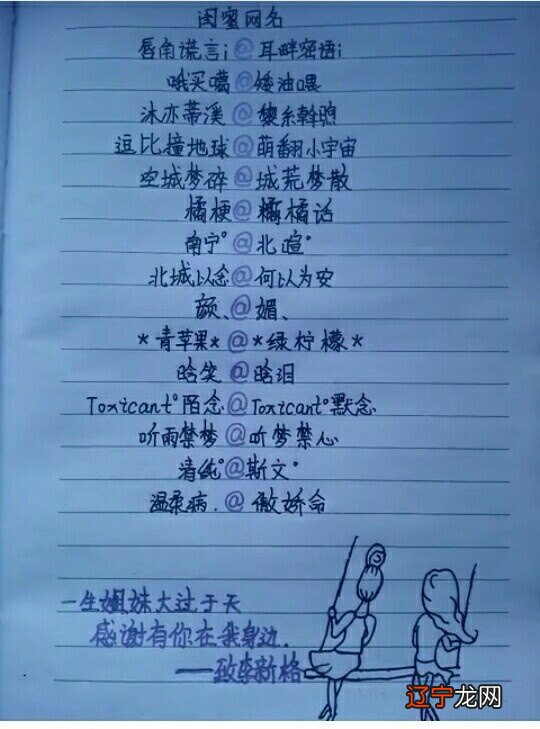 闺蜜网名
唇角谎言i@耳畔密语i
哦买噶@矮油喂
沐亦蒂溪@黎糸斡煦
逗比撞地球@萌翻小宇宙
空城梦碎@城荒梦散
橘梗@橘橘话
南宁°@北暄°
北城以念@何以为安
颜、@媚、
*青苹果*@*绿柠檬*
晗笑@晗泪
Toxicant°陌念@Toxicant°默念
听雨禁梦@听梦禁心
清纯°@斯文°
温柔病.@傲娇命
一生姐妹大过于天
感谢有你在我身边.
——致李新格
辽宁龙网